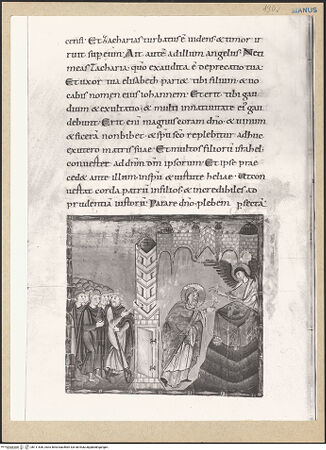 censi. Et Zacharias turbatus ē uidens & timor ir
ruit sup eum. Ait autē ad illum angelus. Ne ti
meas Zacharia. quo exaudita ē deprecatio tua.
Et uxor tua elisabeth pari& tibi filium. & uo
cabis nomen eius iohannem. Et erit tibi gau
dium & exultatio. & multi in natiuitate ei gau
debunt. Erit eni magnus coram dno. & uinum
& sicerā non bib&. & spu sco replebitur adhuc
ex utero matris suae. Et multos filiorū israhel
conuert& ad dnm dm ipsorum. Et ipse prae
ced& ante illum in spu & uirtute heliae. Ut con
uertat corda patrū in filios & incredibiles ad
prudentiā iustorū. Parare dno plebem psectā.
MANUS